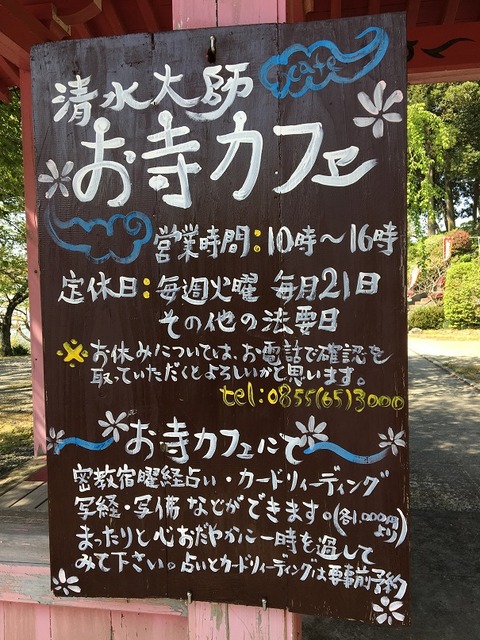 清水大師
お寺カフェ
営業時間:10時〜16時
定休日:毎週火曜 毎月21日
その他の法要日
※お休みについては、お電話で確認を
取っていただくとよろしいかと思います。
tel:0855(65)3000
お寺カフェにて
密教宿曜経占い・カードリィーディング
写経・写佛などができます。(各1,000円より)
まったりと心おだやかに一時を過して
みて下さい。占いとカードリィーディングは要事前予約